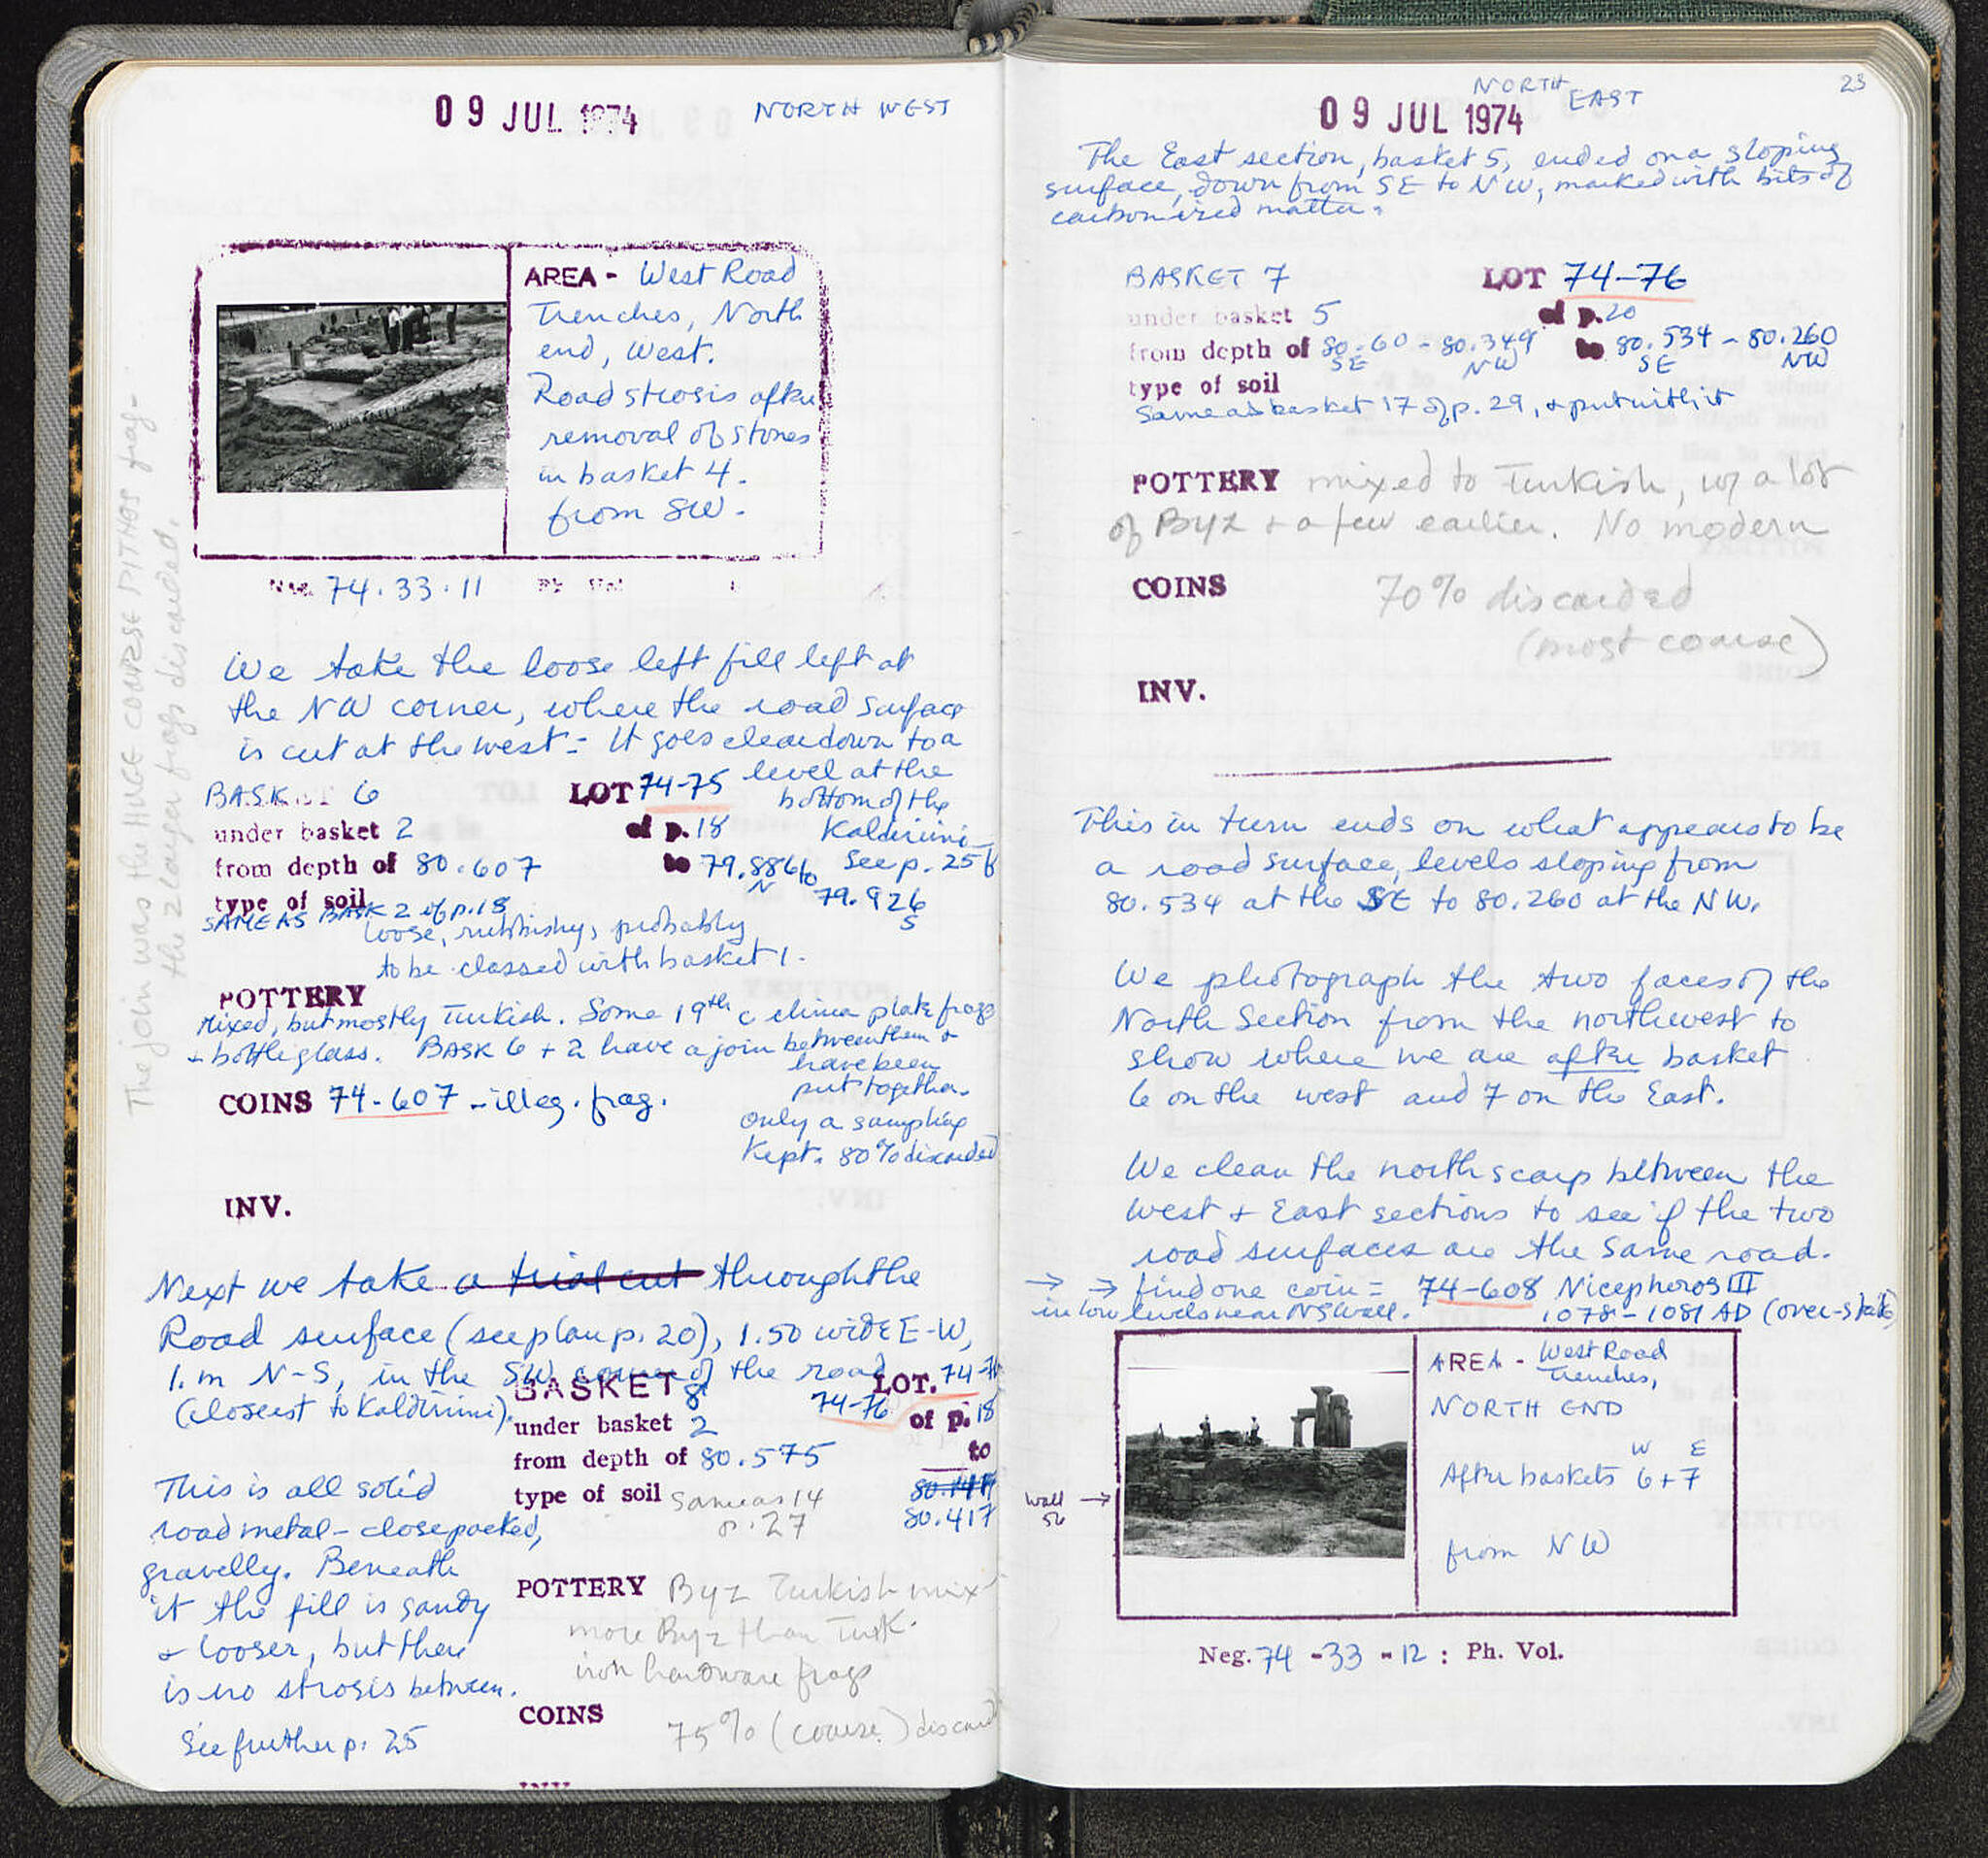 09 JUL 1974 NORTH WEST
AREA - West Road
Trenches, North
end, West.
Road strosis after
removal of stones
in basket 4.
from SW.
Neg. 74.33.11
We take the loose left fill left at
the NW corner, where the road surface
is cut at the west - It goes clear down to a
level at the
bottom of the
Kaldirimi -
See p. 25 f
BASKET 6 LOT 74-75
under basket 2 of p. 18
from depth of 80.607 to 79.886 to
N 79.926
S
type of soil
SAME AS BASK 2 of p. 18
loose, rubbishy, probably
to be classed with basket 1.
POTTERY
Mixed, but mostly Turkish. Some 19th c china plate frags
+ bottle glass. BASK 6 + 2 have a join between them +
have been
put together.
Only a sampling
Kept. 80% discarded
COINS 74-607 - illeg. frag.
INV.
The join was the HUGE COARSE PITHOS frag -
the 2 larger frags discarded.
Next we take a trial cut through the
Road surface (see plan p. 20), 1.50 wide E-W,
1. m N-S, in the SW corner of the road
(closest to Kaldirimi).
BASKET 8 LOT. 74-76
74-76
under basket 2 of p. 18
from depth of 80.575 to
80.417
type of soil same as 14
p. 27
This is all solid
road metal - close packed,
gravelly. Beneath
it the fill is sandy
+ looser, but there
is no strosis between.
See further p. 25
POTTERY Byz Turkish mix
more Byz than Turk.
iron hardware frags
COINS
75% (coarse) discard
INV.
23
NORTH EAST
09 JUL 1974
The East section, basket 5, ended on a sloping
surface, down from SE to NW, marked with bits of
carbonized matter.
BASKET 7 LOT 74-76
under basket 5 of p. 20
from depth of 80.60 - 80.349 to 80.534 - 80.260
SE NW SE NW
type of soil
Same as basket 17 of p. 29, + put with it
POTTERY mixed to Turkish, w/ a lot
of Byz + a few earlier. No modern
COINS 70% discarded
(most coarse)
INV.
This in turn ends on what appears to be
a road surface, levels sloping from
80.534 at the SE to 80.260 at the NW.
We photograph the two faces of the
North Section from the northwest to
show where we are after basket
6 on the west and 7 on the East.
We clean the north scarp between the
west + East sections to see if the two
road surfaces are the same road.
→ → find one coin = 74-608 Nicephoros III
in low levels near NS wall. 1078-1081 AD (over-struck)
AREA - West Road
Trenches,
NORTH END
W E
After baskets 6 + 7
from NW
wall →
56
Neg. 74-33-12 : Ph. Vol.